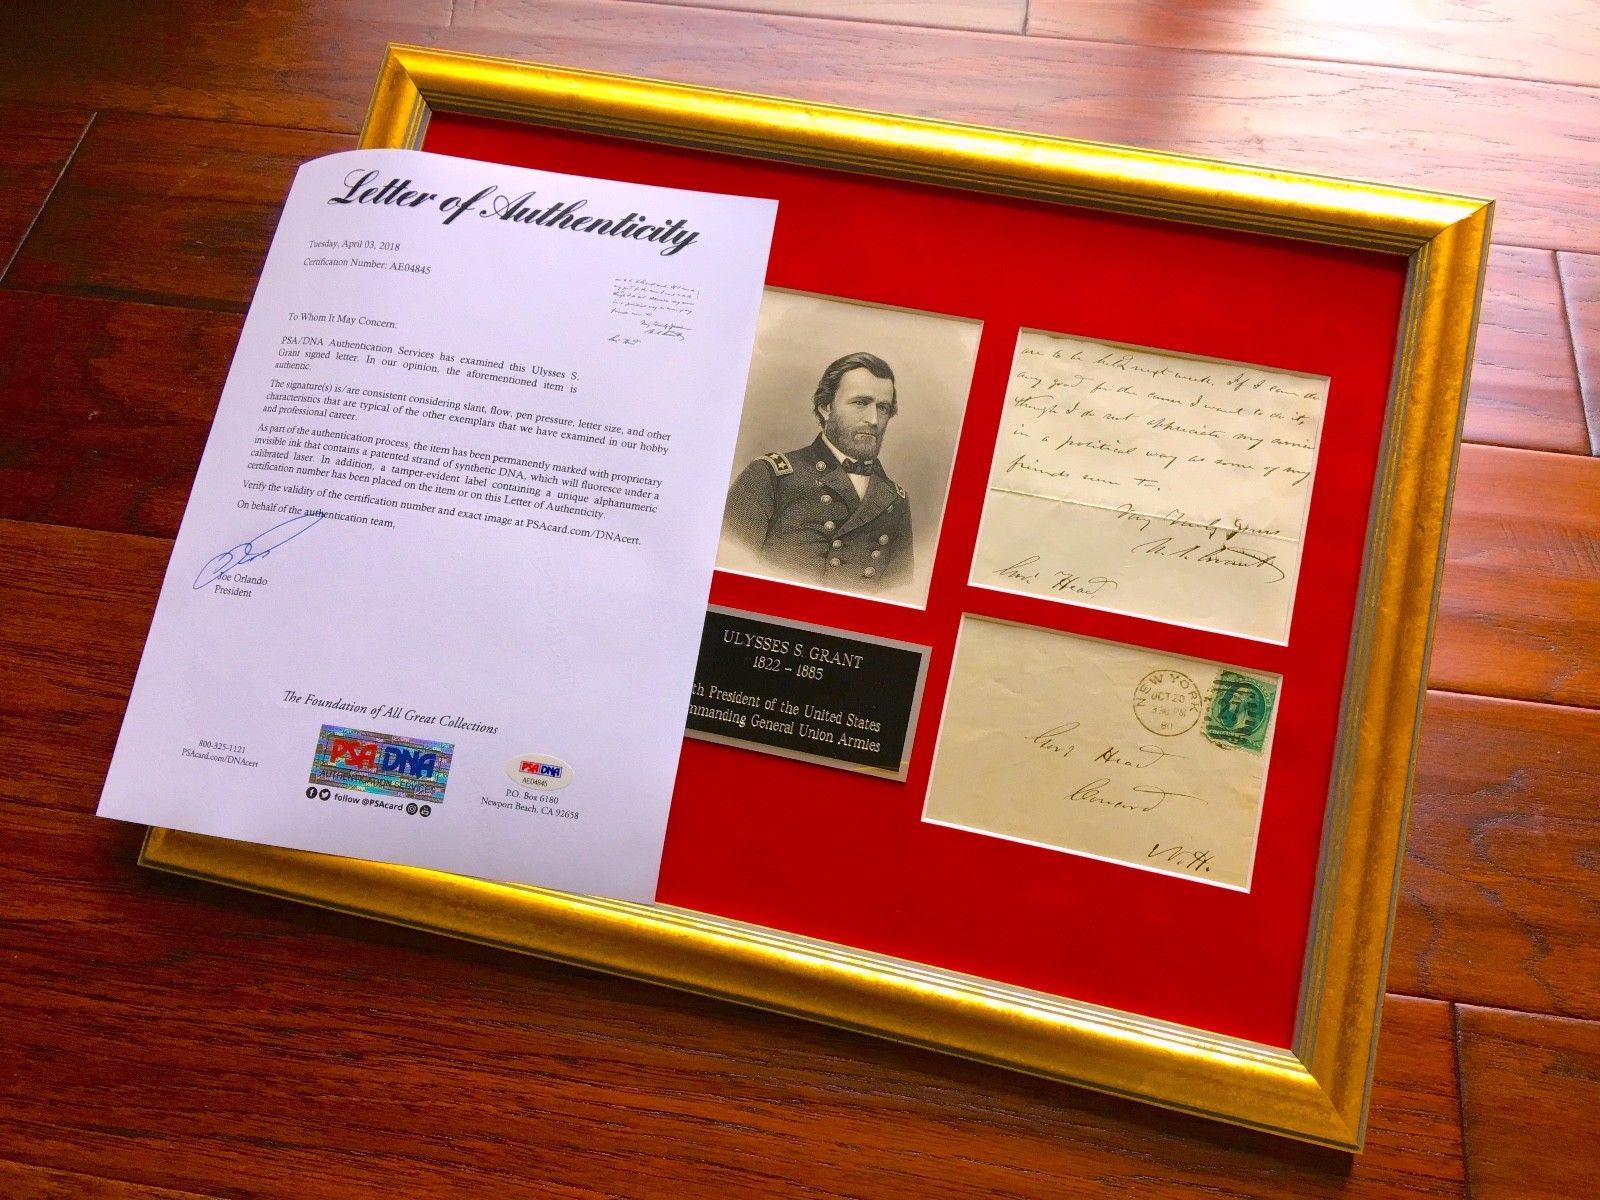 Letter of Authenticity
Tuesday, April 03, 2018
Certification Number: AE04845
To Whom It May Concern:
PSA/DNA Authentication Services has examined this Ulysses S.
Grant signed letter. In our opinion, the aforementioned item is
authentic.
The signature(s) is/are consistent considering slant, flow, pen pressure, letter size, and other
characteristics that are typical of the other exemplars that we have examined in our hobby
and professional career.
As part of the authentication process, the item has been permanently marked with proprietary
invisible ink that contains a patented strand of synthetic DNA, which will fluoresce under a
calibrated laser. In addition, a tamper-evident label containing a unique alphanumeric
certification number has been placed on the item or on this Letter of Authenticity.
Verify the validity of the certification number and exact image at PSAcard.com/DNAcert.
On behalf of the authentication team,
Joe Orlando
President
The Foundation of All Great Collections
800-325-1121
PSAcard.com/DNAcert
PSA DNA
AUTHENTICATION SERVICES
follow @PSAcard
PSA DNA
AE04845
P.O. Box 6180
Newport Beach, CA 92658
ULYSSES S. GRANT
1822 - 1885
th President of the United States
mmanding General Union Armies
are to be held next week. If I can do
any good for the cause I want to do it,
though I do not appreciate my services
in a political way as some of my
friends seem to.
Very Truly Yours
U. S. Grant
Gov. Head
NEW YORK
OCT 20
3 30 PM
80
Gov. Head
Concord
N.H.